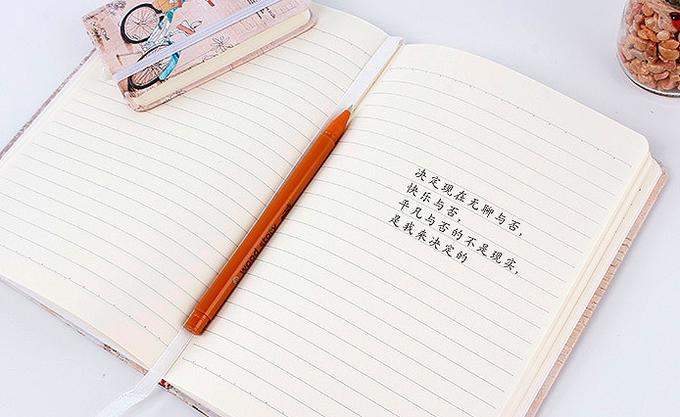 决定现在无聊与否，
快乐与否，
平凡与否的不是现实，
是我来决定的
wood story